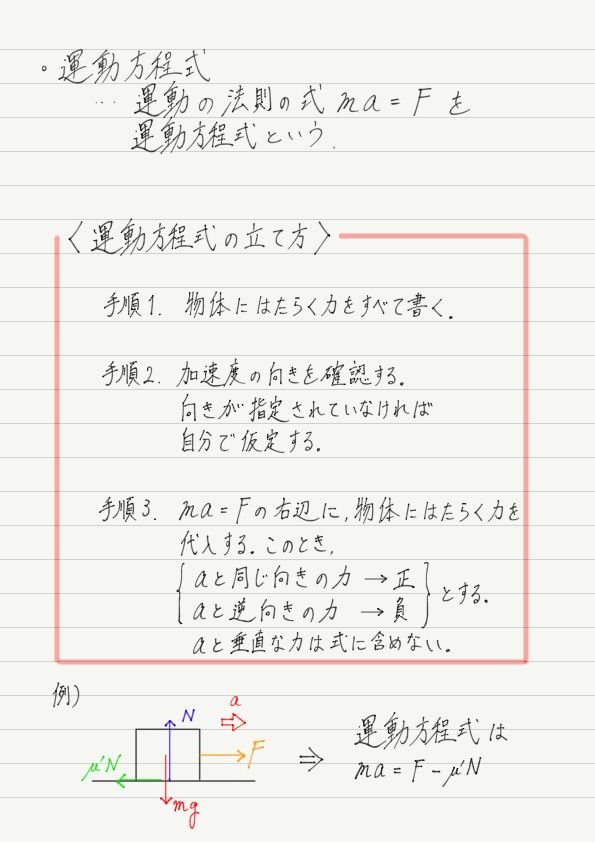 。運動方程式
… 運動の法則の式 ma = F を
運動方程式という.
〈運動方程式の立て方〉
手順1. 物体にはたらく力をすべて書く.
手順2. 加速度の向きを確認する.
向きが指定されていなければ
自分で仮定する.
手順3. ma = Fの右辺に, 物体にはたらく力を
代入する. このとき,
{ aと同じ向きの力 → 正 }
{ aと逆向きの力 → 負 } とする.
aと垂直な力は式に含めない.
例)
a
N
F
μ'N
mg
⇒ 運動方程式は
ma = F − μ'N